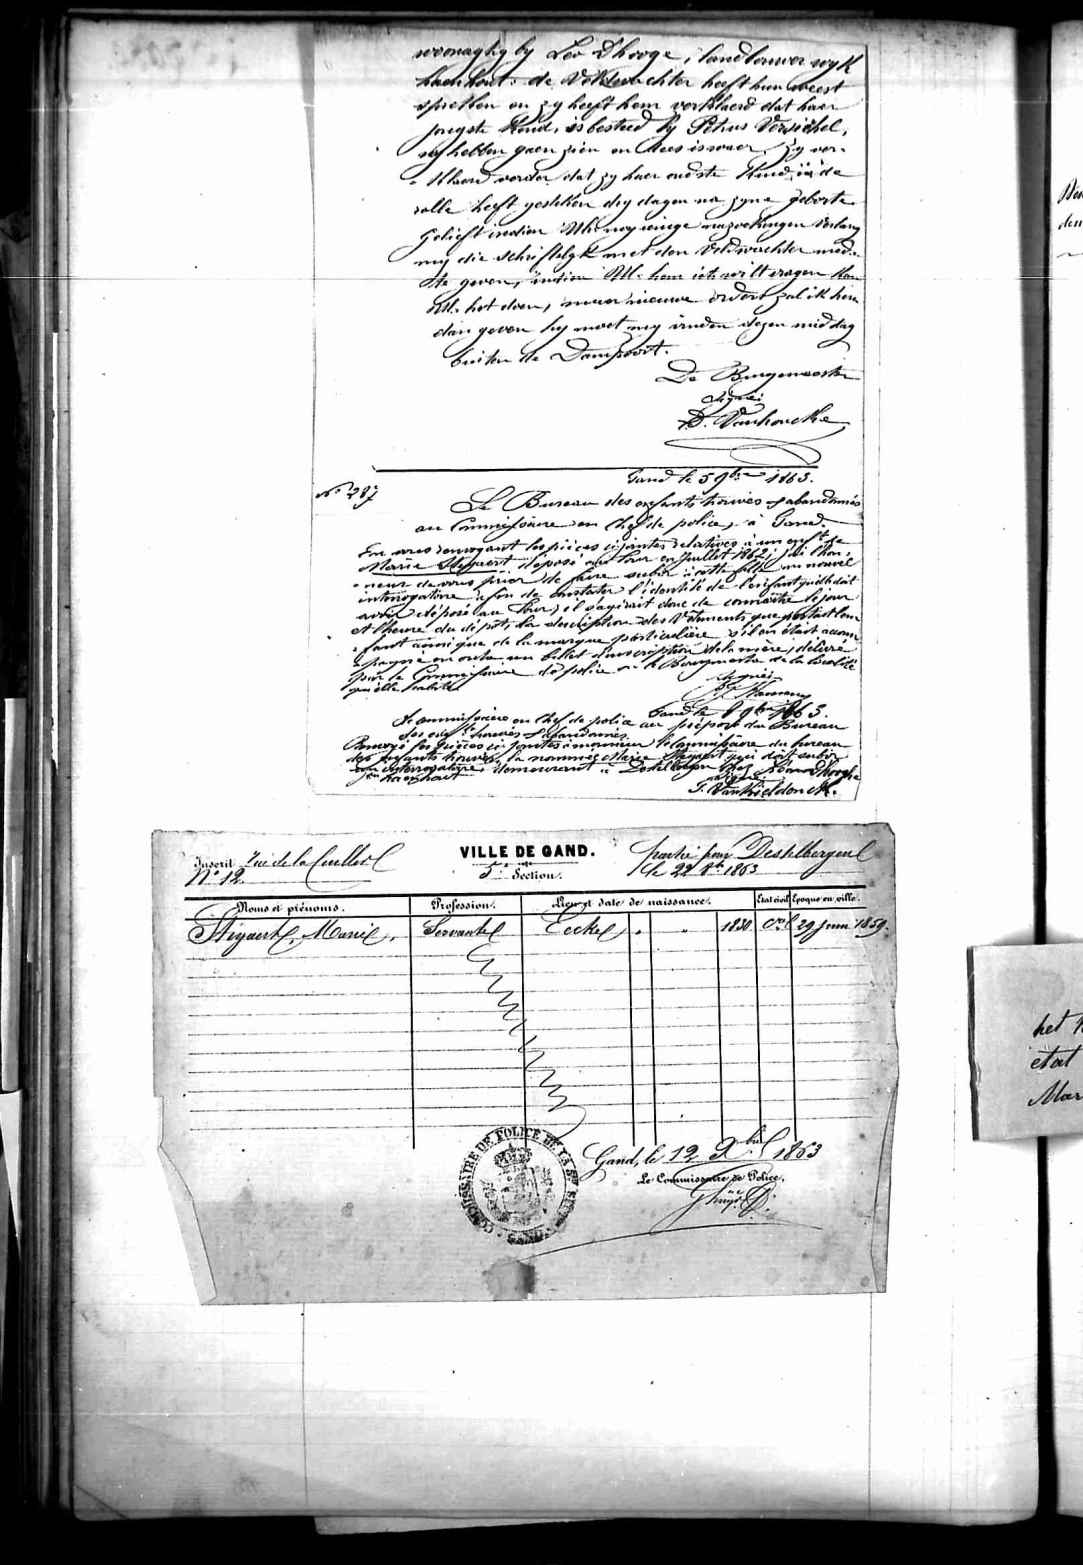 woonachtig by Leo Dhooge, landbouwer wyk
haenhout. de Veldwachter heeft hun weest
spreken en zy heeft hem verklaerd dat haer
jongste kind, is besteed by Petrus Versichel,
wy hebben gaen zien en dees is waer, Zy ver-
-klaerd verder dat zy haer oudste kind in de
rolle heeft gesteken dry dagen na zyne geborte.
Gelieft indien Ul. nog eenige nazoekingen verlang
my die schriftelyk met den Veldwachter mede-
te geven, indien Ul. hem iets wilt vragen kan
Ul. het doen, meer nieuwe orders zal ik hem
dan geven hy moet my vinden dezen middag
buiten de Dampoort.
De Burgemeester
signé
D. Vanhoucke
Gand le 5 9bre 1863.
N° 287
Le Bureau des enfants trouvés & abandonnés
au Commissaire en chef de police, à Gand.
En vous renvoyant les pièces ci jointes relatives à un enft de
Marie Steyaert déposé au tour en Juillet 1862, j'ai l'hon-
-neur de vous prier de faire subir à cette fille un nouvel
interrogatoire afin de constater l'identité de l'enfant qu'elle doit
avoir déposé au Tour, il s'agirait donc de connaître le jour
et l'heure du dépôt, la description des vêtements que portait l'en-
-fant ainsi que de la marque particulière s'il en était accom-
-pagné en outre un billet d'inscription de la mère, délivré
par le Commissaire de police ou le Bourgmestre de la localité
qu'elle habite
signé
Gand le 8 9bre 1863.
Le commissaire en chef de police au préposé du Bureau
des enfts trouvés & abandonnés.
Renvoyé les pièces ci jointes à monsieur le Commissaire du bureau
des enfants trouvés, la nommée Marie Steyaert qui doit subir
un interrogatoire, demeurant à Destelbergen chez Léon Dhooghe
au haenhout
signé
T. Van Kieldonck.
VILLE DE GAND.
5e Section.
Inscrit Rue de la Cuiller
N° 12.
partie pour Destelbergen
le 22 8bre 1863
Noms et prénoms. Profession. Lieu et date de naissance. Etat civil Epoque en ville.
Steyaert, Marie, Servante Eecke, " " 1838. Cre 29 Juin 1859.
Gand, le 12 Xbre 1863
Le Commissaire de Police,
COMMISSAIRE DE POLICE DE LA 5e SECTION
GAND
het
état
Mar